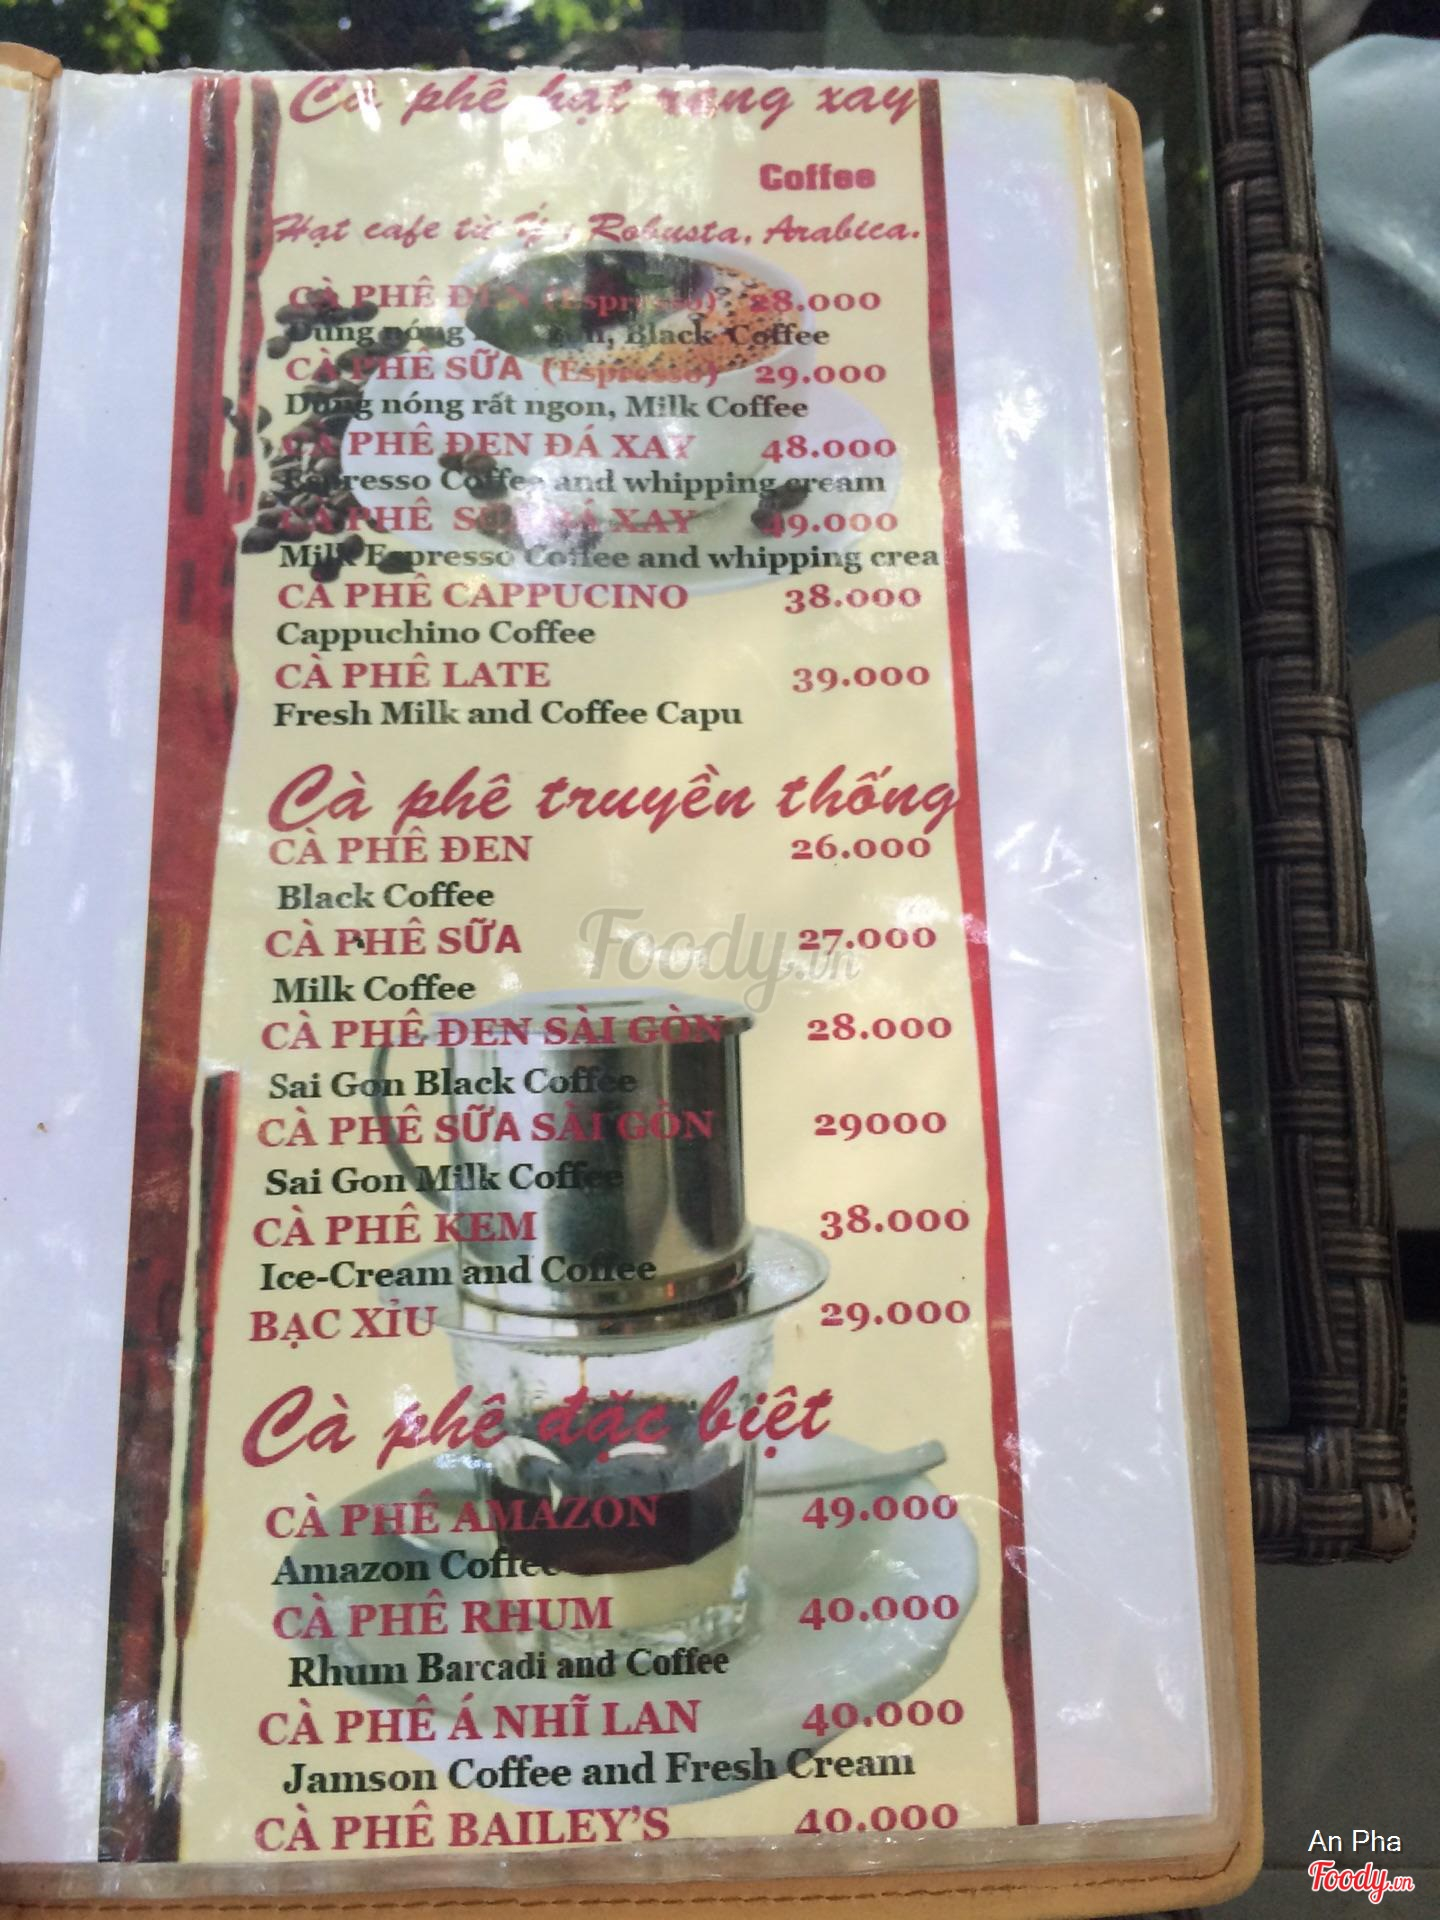 Cà phê hạt rang xay
Coffee
Hạt cafe từ Ý, Robusta, Arabica.
CÀ PHÊ ĐEN (Espresso) 28.000
Dùng nóng ngon, Black Coffee
CÀ PHÊ SỮA (Espresso) 29.000
Dùng nóng rất ngon, Milk Coffee
CÀ PHÊ ĐEN ĐÁ XAY 48.000
Espresso Coffee and whipping cream
CÀ PHÊ SỮA ĐÁ XAY 49.000
Milk Espresso Coffee and whipping crea
CÀ PHÊ CAPPUCINO 38.000
Cappuchino Coffee
CÀ PHÊ LATE 39.000
Fresh Milk and Coffee Capu
Cà phê truyền thống
CÀ PHÊ ĐEN 26.000
Black Coffee
CÀ PHÊ SỮA 27.000
Foody.vn
Milk Coffee
CÀ PHÊ ĐEN SÀI GÒN 28.000
Sai Gon Black Coffee
CÀ PHÊ SỮA SÀI GÒN 29000
Sai Gon Milk Coffee
CÀ PHÊ KEM 38.000
Ice-Cream and Coffee
BẠC XỈU 29.000
Cà phê đặc biệt
CÀ PHÊ AMAZON 49.000
Amazon Coffee
CÀ PHÊ RHUM 40.000
Rhum Barcadi and Coffee
CÀ PHÊ Á NHĨ LAN 40.000
Jamson Coffee and Fresh Cream
CÀ PHÊ BAILEY'S 40.000
An Pha
Foody.vn